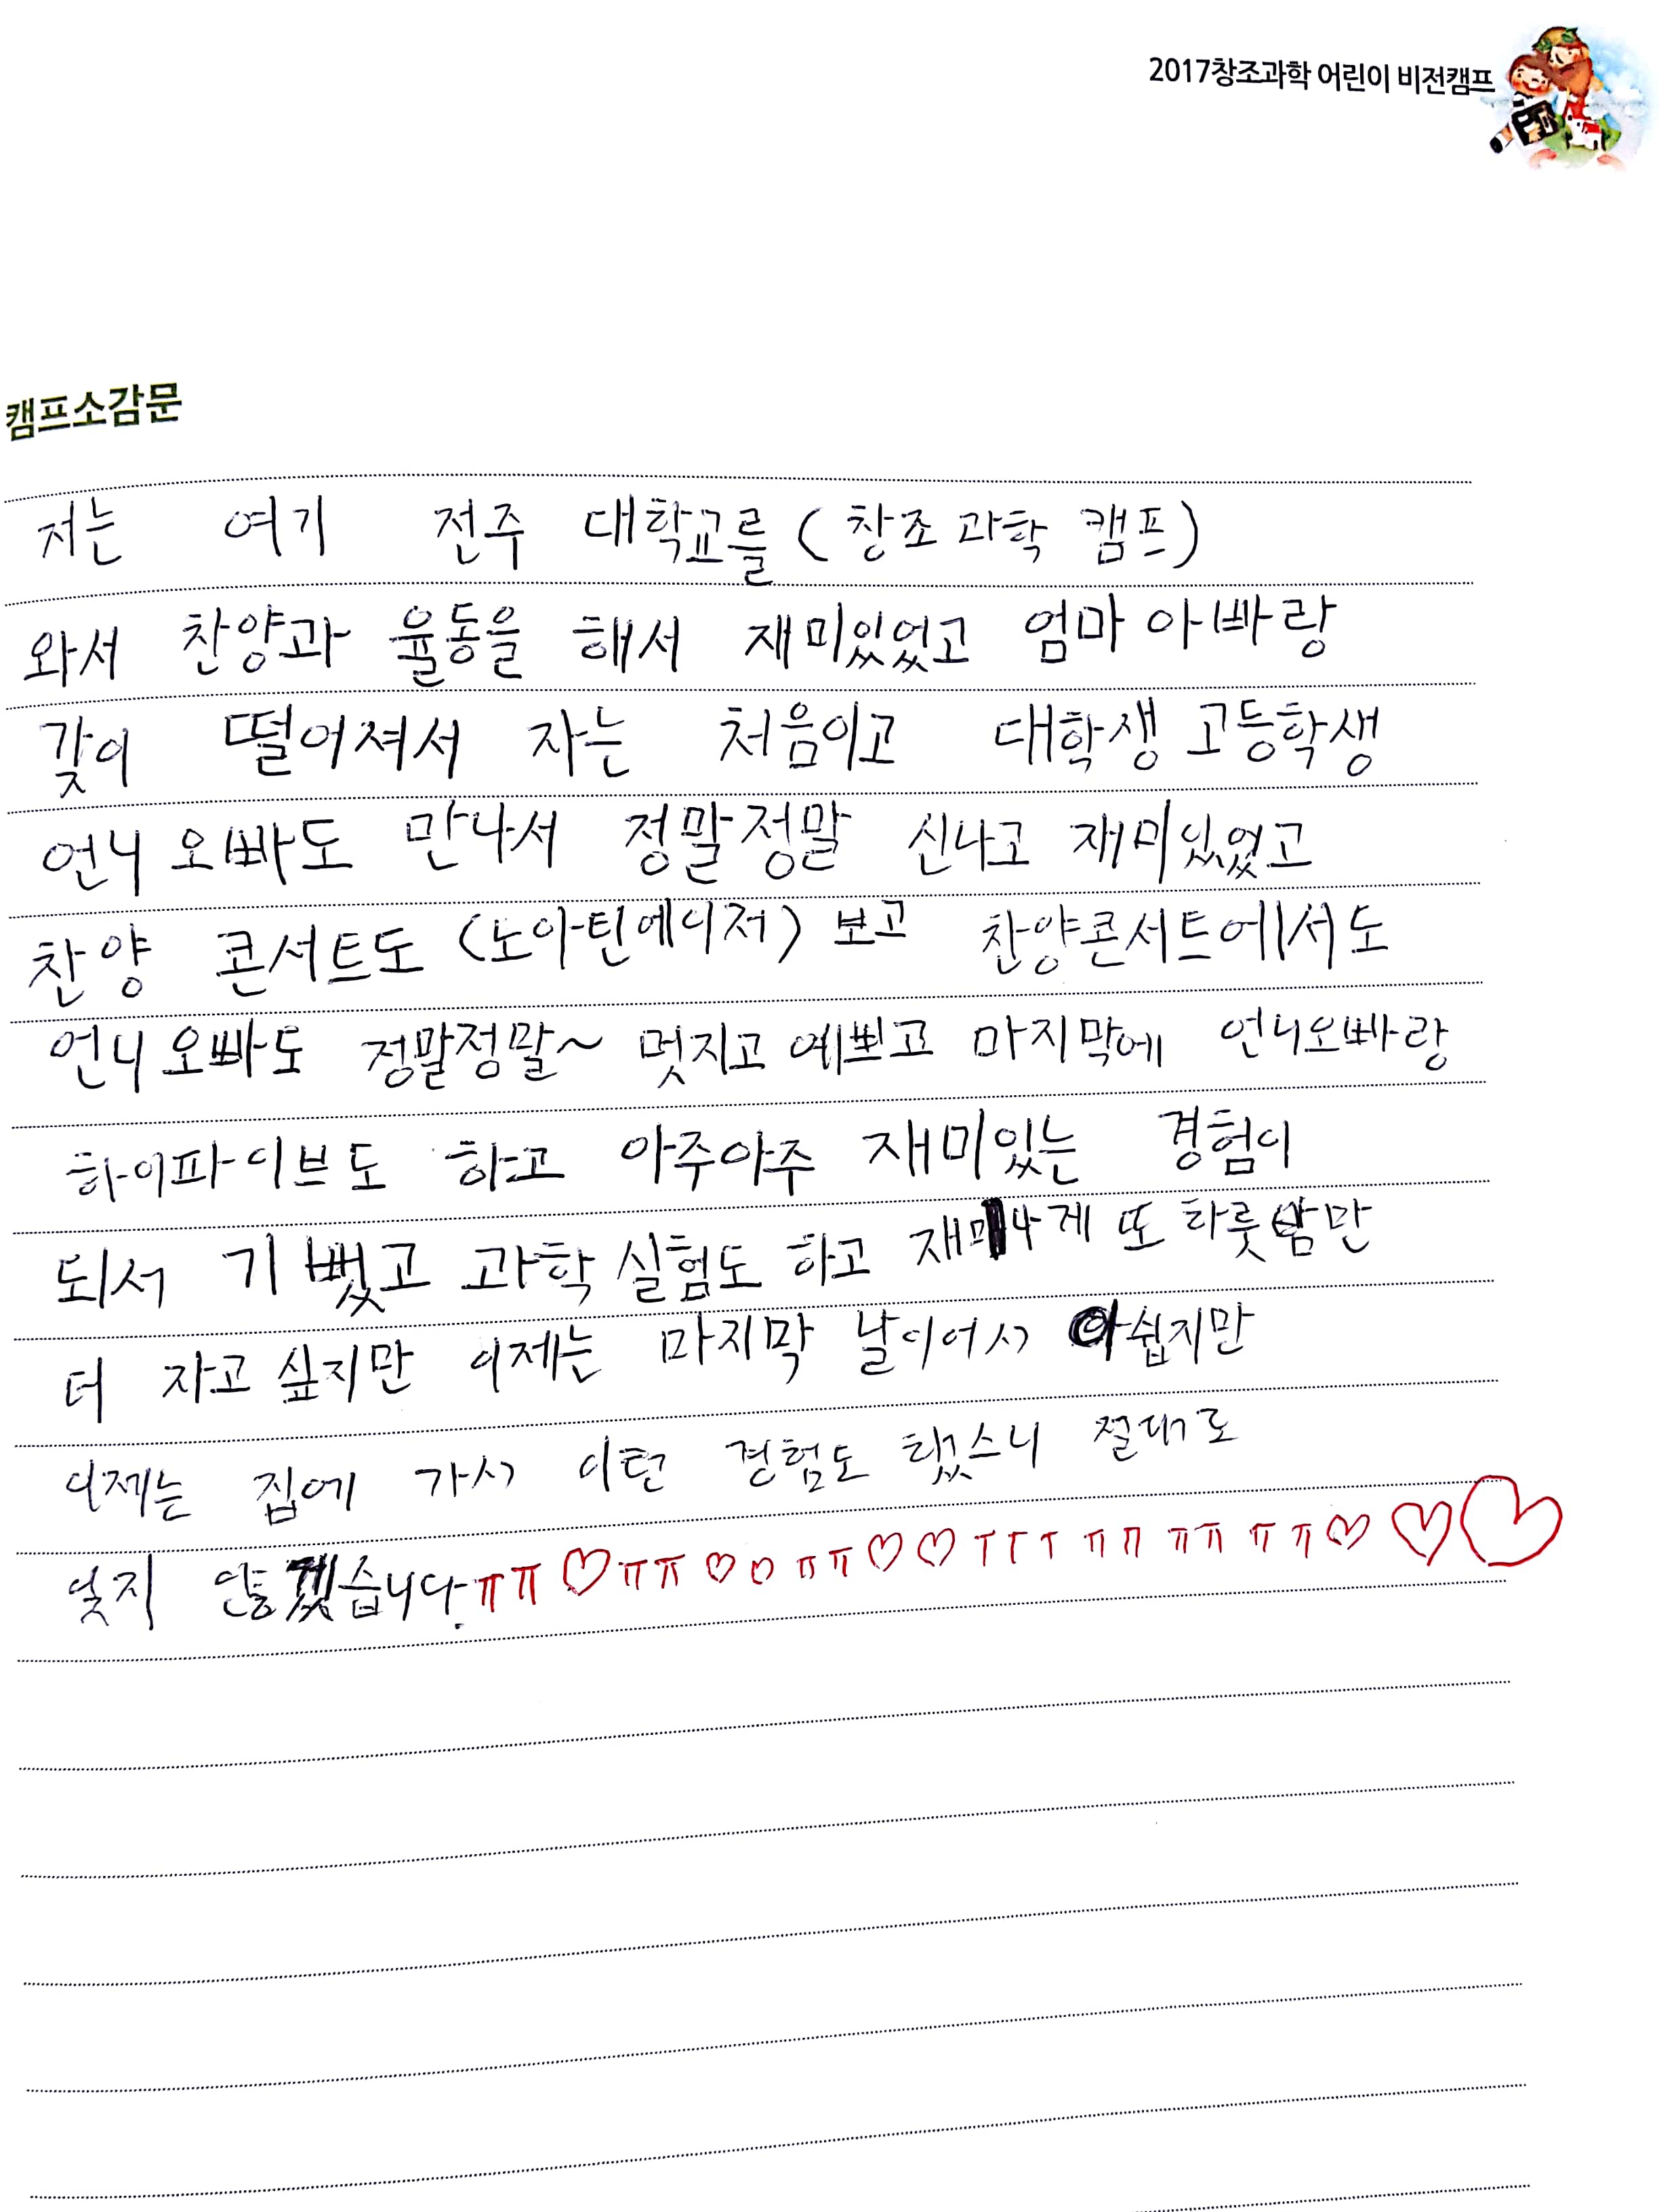 2017창조과학 어린이 비전캠프
캠프소감문
저는 여기 전주 대학교를 (창조 과학 캠프)
와서 찬양과 율동을 해서 재미있었고 엄마 아빠랑
갖이 떨어져서 자는 처음이고 대학생 고등학생
언니 오빠도 만나서 정말정말 신나고 재미있었고
찬양 콘서트도 (노아틴에이저) 보고 찬양콘서트에서도
언니 오빠도 정말정말~ 멋지고 예쁘고 마지막에 언니오빠랑
하이파이브도 하고 아주아주 재미있는 경험이
되서 기뻤고 과학 실험도 하고 또 하룻밤만
더 자고 싶지만 이제는 마지막 날이어서 아쉽지만
이제는 집에 가서 이런 경험도 했스니 절대로
잊지 않겠습니다. ㅠㅠ♡ㅠㅠ♡♡ㅠㅠ♡♡ㅜㅜㅜㅠㅠㅠㅠㅠㅠ♡♡♡